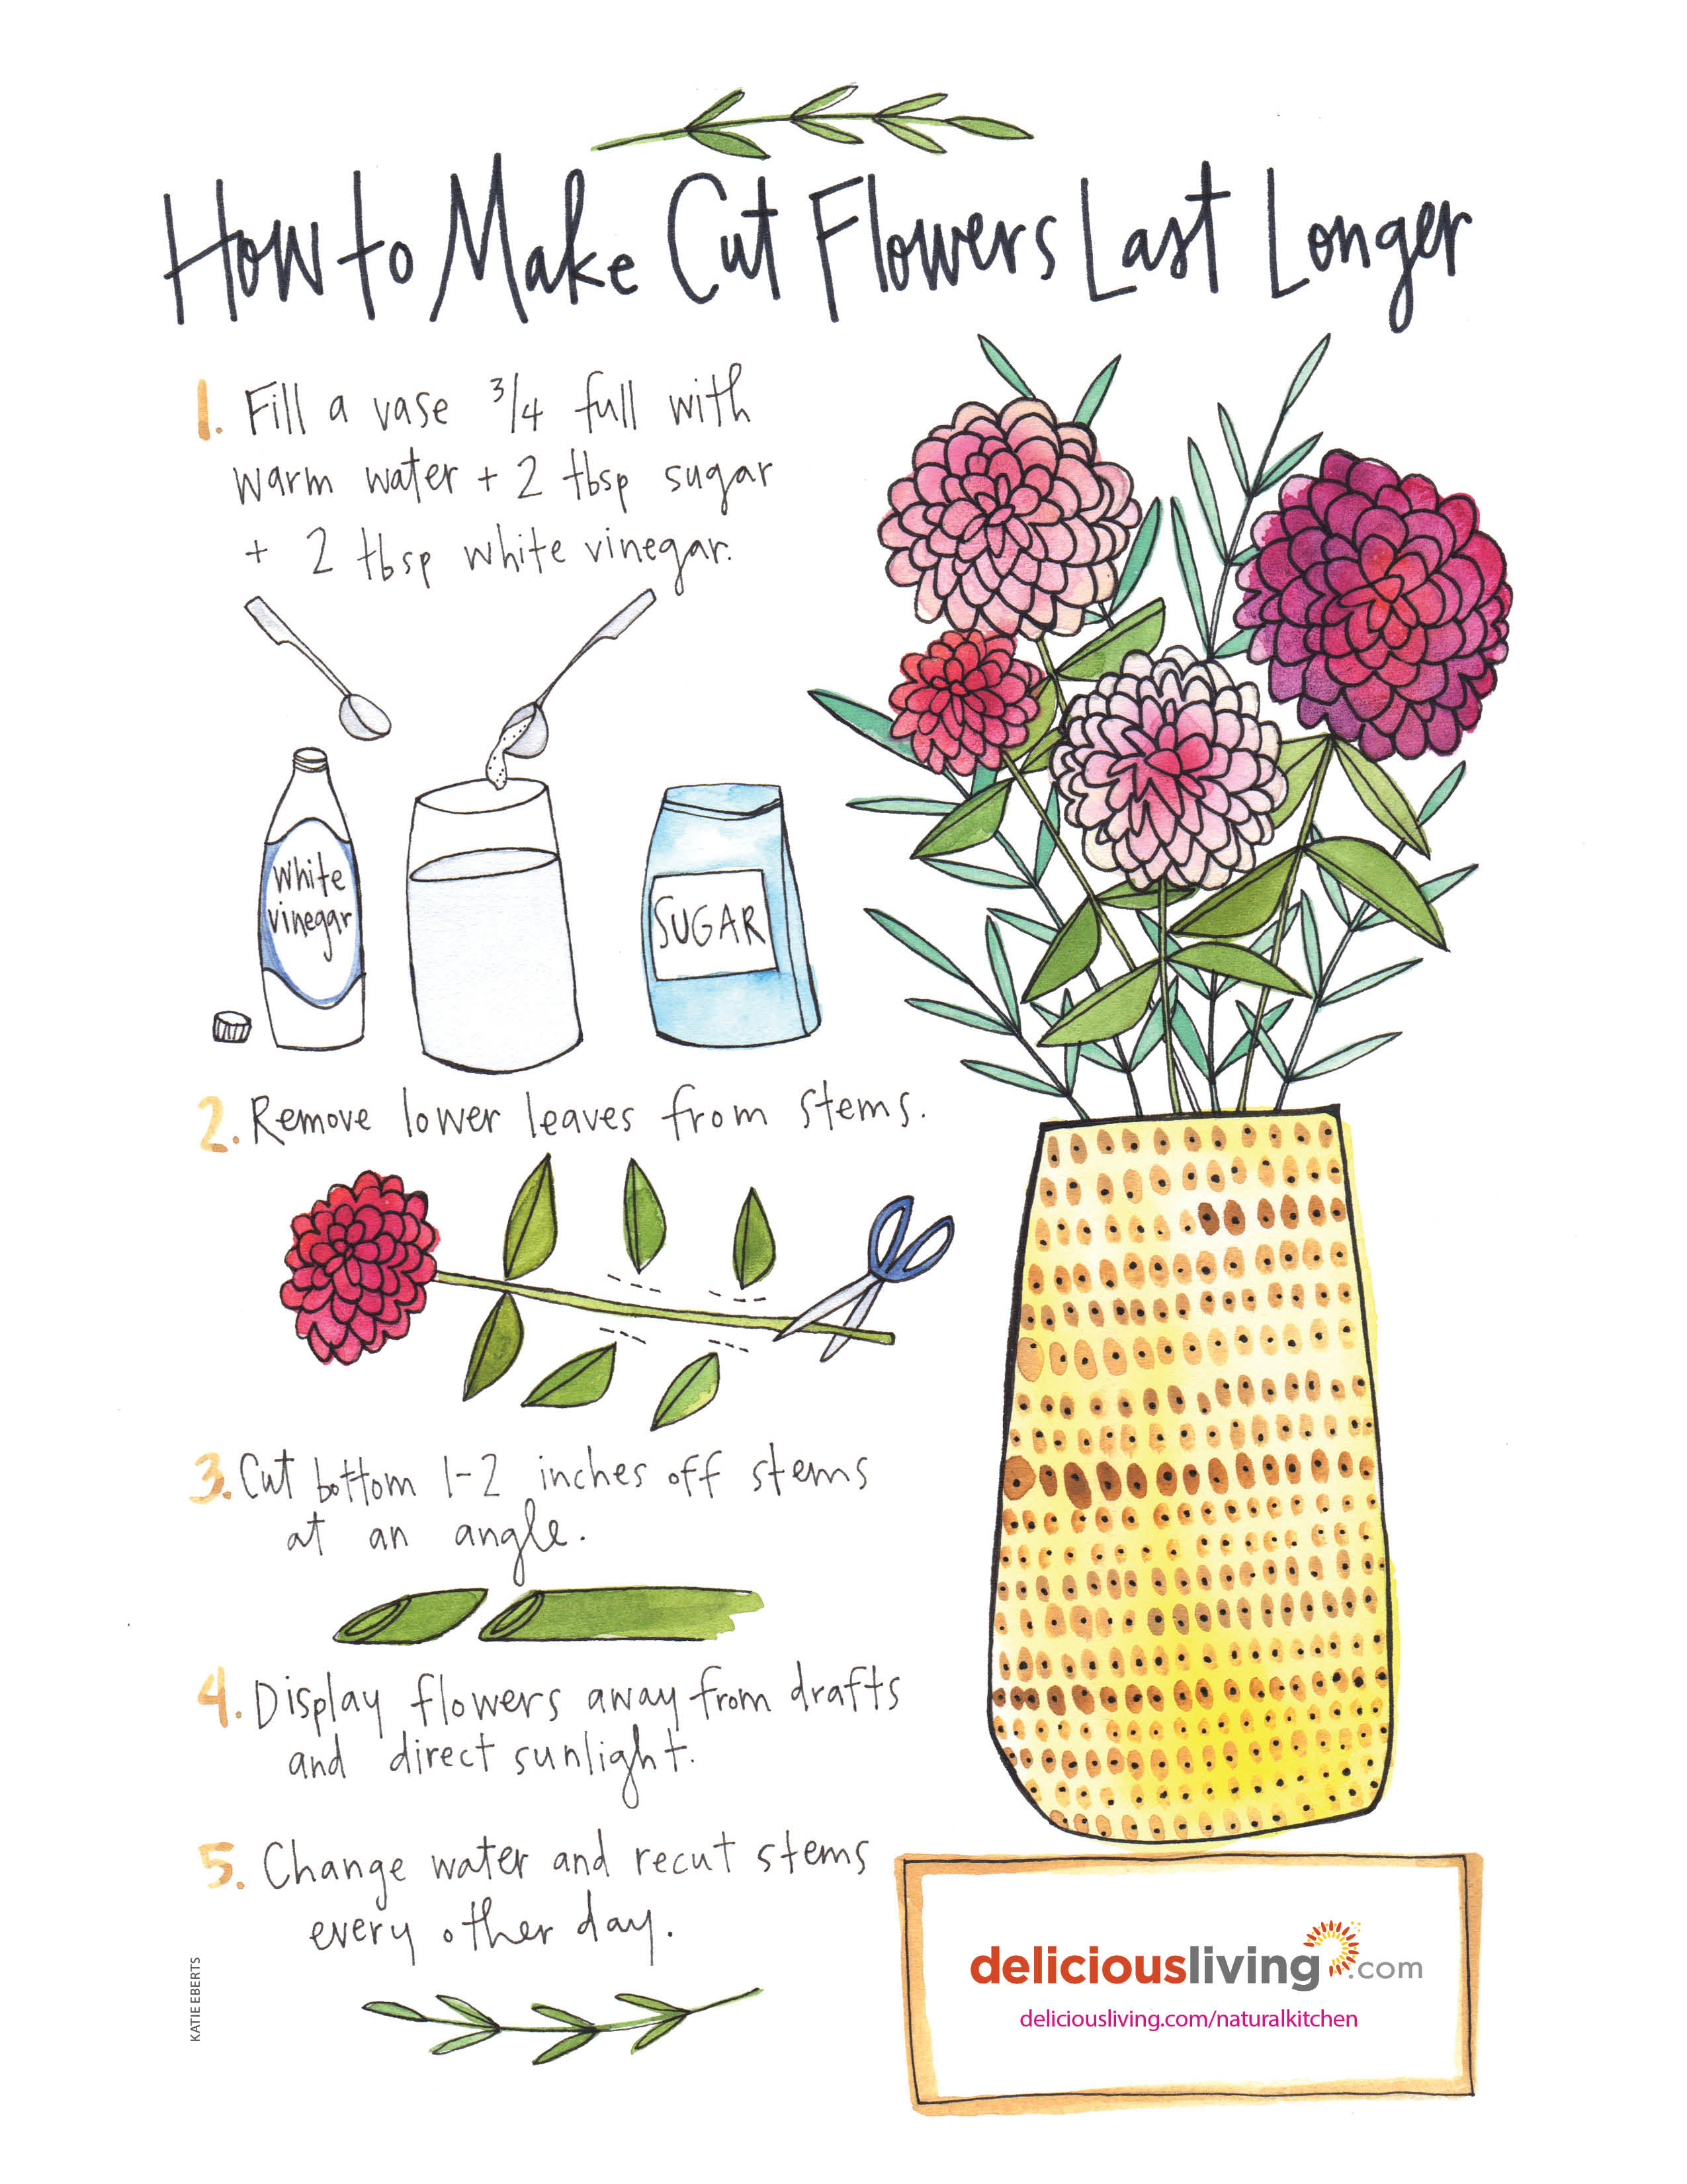 How to Make Cut Flowers Last Longer
1. Fill a vase 3/4 full with
warm water + 2 tbsp sugar
+ 2 tbsp white vinegar.
White
vinegar
SUGAR
2. Remove lower leaves from stems.
3. Cut bottom 1-2 inches off stems
at an angle.
4. Display flowers away from drafts
and direct sunlight.
5. Change water and recut stems
every other day.
KATIE EBERTS
deliciousliving.com
deliciousliving.com/naturalkitchen